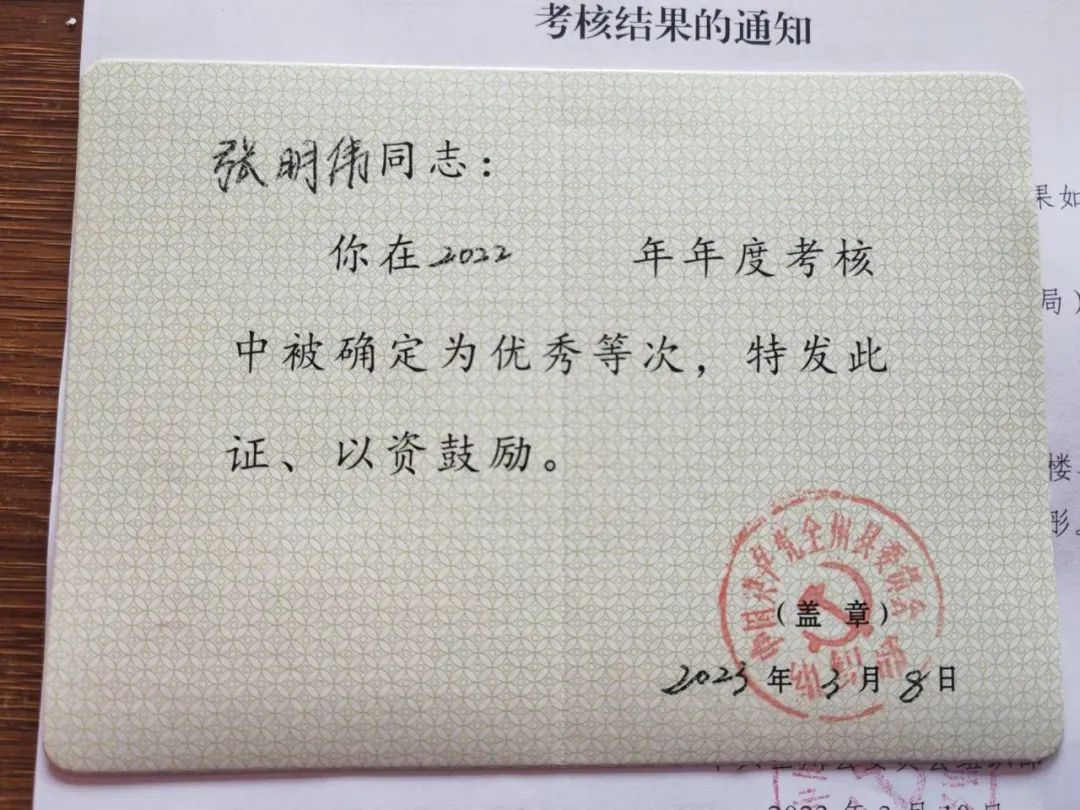 考核结果的通知
张明伟同志：
你在2022 年年度考核
中被确定为优秀等次，特发此
证、以资鼓励。
中国共产党全州县委员会
（盖章）
组织部
2023年3月8日
果如
局）
楼
彤。